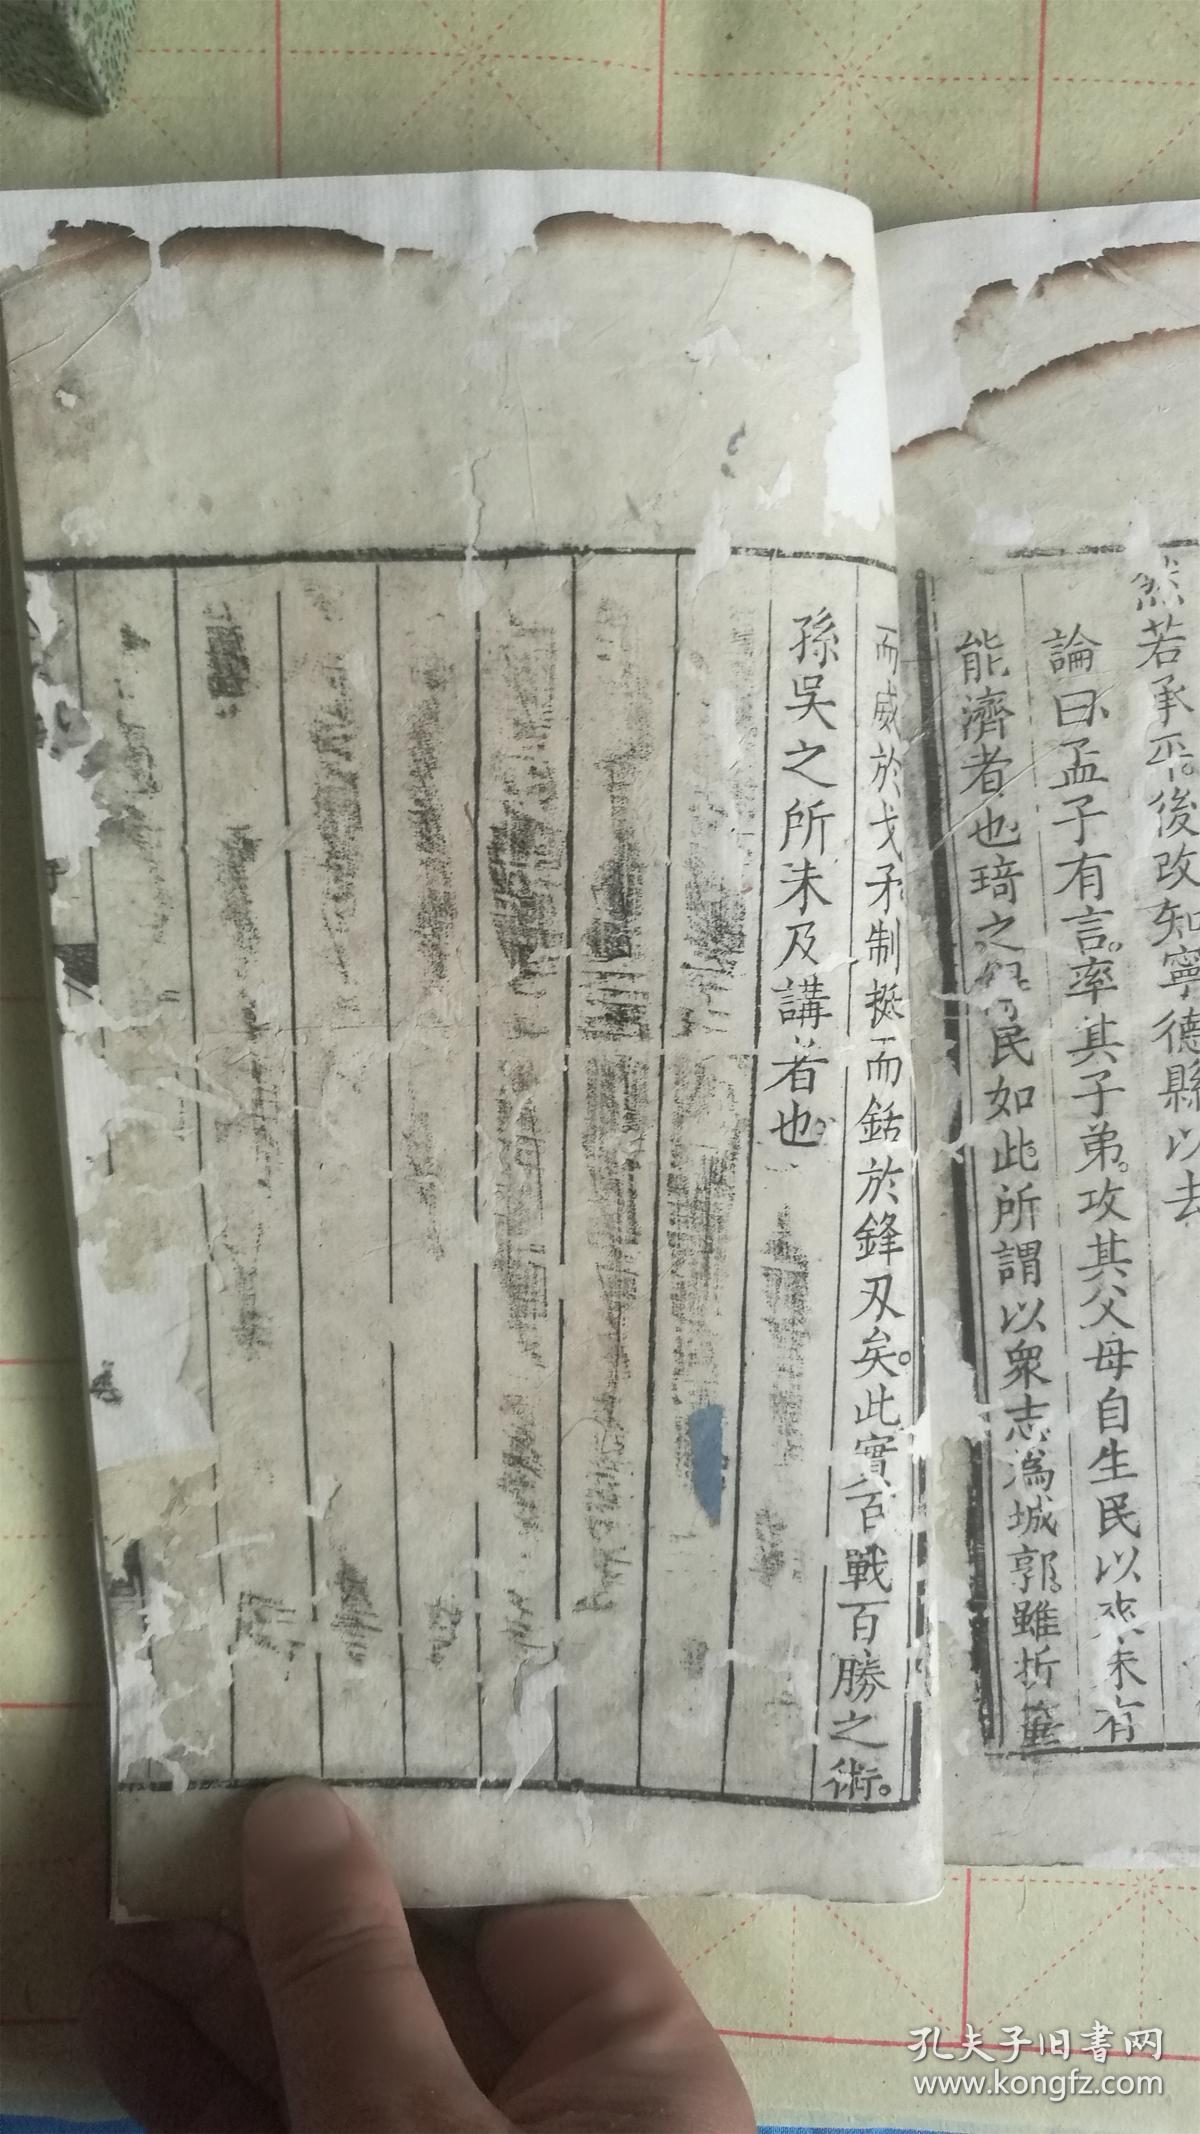 然若承平。後改知寧德縣以去
論曰孟子有言。率其子弟。攻其父母自生民以來未有
能濟者也琦之得民如此所謂以衆志為城郭雖折箠
而威於戈矛制挺而銛於鋒刃矣。此實百戰百勝之術。
孫吳之所未及講者也
孔夫子旧书网
www.kongfz.com